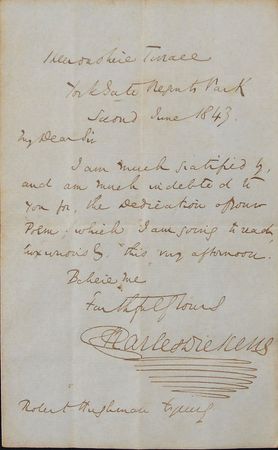 Devonshire Terrace
York Gate Regents Park
Second June 1843.
My Dear Sir
I am much gratified by,
and am much indebted to
you for, the Dedication of your
Poem: which I am going to read
luxuriously, this very afternoon.
Believe me
Faithfully Yours
Charles Dickens
Robert